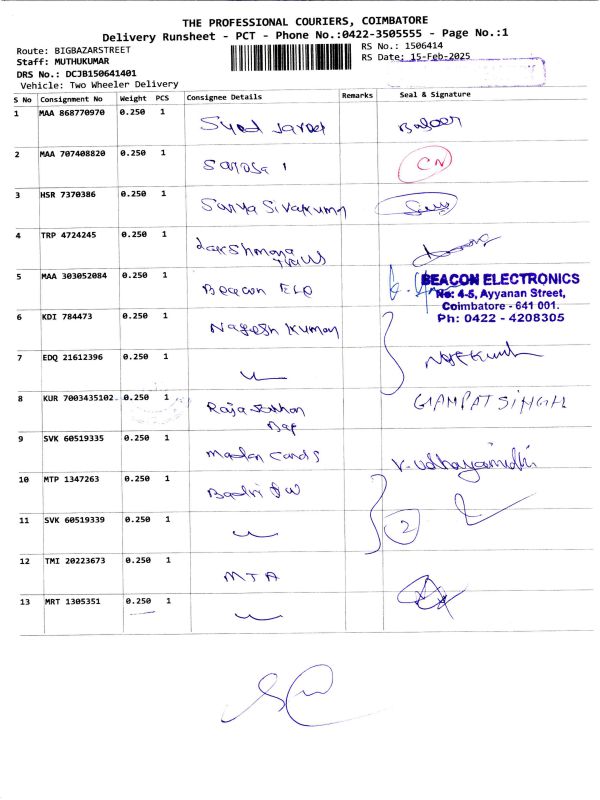 THE PROFESSIONAL COURIERS, COIMBATORE
Delivery Runsheet - PCT - Phone No.:0422-3505555 - Page No.:1
Route: BIGBAZARSTREET
RS No.: 1506414
Staff: MUTHUKUMAR
RS Date: 15-Feb-2025
DRS No.: DCJB150641401
Vehicle: Two Wheeler Delivery
S No Consignment No Weight PCS Consignee Details Remarks Seal & Signature
1 MAA 868770970 0.250 1 Syed Javeed
2 MAA 707408820 0.250 1 CN
3 HSR 7370386 0.250 1 Sanya Sivakumar
4 TRP 4724245 0.250 1 Lakshmana
5 MAA 303052084 0.250 1 Beacon Ele
BEACON ELECTRONICS
No: 4-5, Ayyanan Street,
Coimbatore - 641 001.
Ph: 0422 - 4208305
6 KDI 784473 0.250 1 Nagesh Kumar
7 EDQ 21612396 0.250 1
8 KUR 7003435102 0.250 1 Raja GANPAT SINGH
9 SVK 60519335 0.250 1 Cards V. Udhayanidhi
10 MTP 1347263 0.250 1 Badri
11 SVK 60519339 0.250 1 2
12 TMI 20223673 0.250 1 MTA
13 MRT 1305351 0.250 1